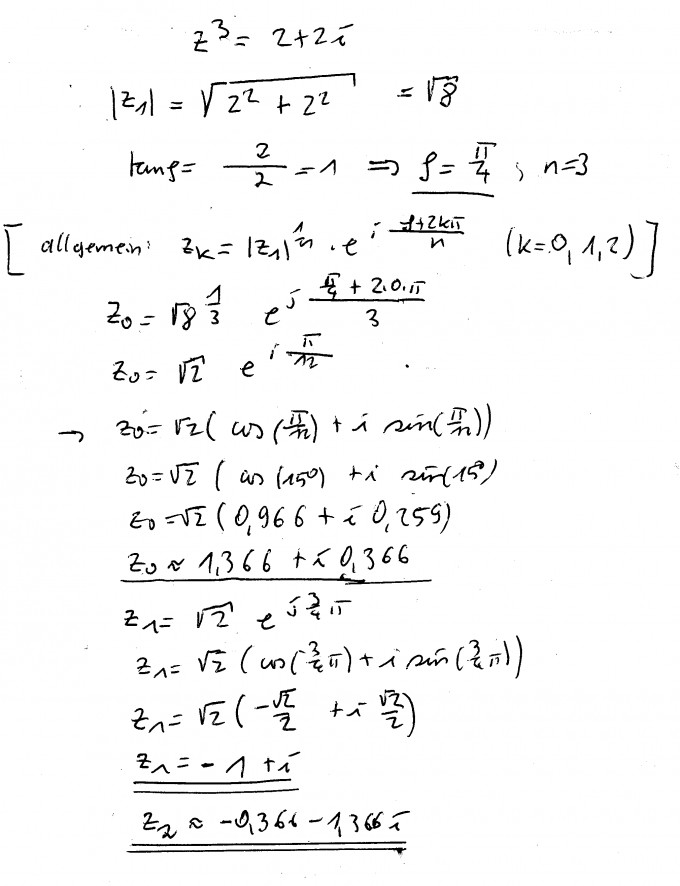 z³ = 2+2i
|z₁| = √(2² + 2²) = √8
tan φ = 2/2 = 1 ⇒ φ = π/4 ; n=3
[allgemein: z_k = |z₁|^(1/n) · e^(i (φ+2kπ)/n) (k=0, 1, 2)]
z₀ = √8^(1/3) e^(j (π/4 + 2·0·π)/3)
z₀ = √2 e^(i π/12)
→ z₀ = √2 ( cos (π/12) + i sin(π/12))
z₀ = √2 ( cos (15°) + i sin(15°)
z₀ = √2 ( 0,966 + i 0,259)
z₀ ≈ 1,366 + i 0,366
z₁ = √2 e^(j 3/4 π)
z₁ = √2 ( cos(3/4 π) + i sin (3/4 π))
z₁ = √2 ( -√2/2 + i √2/2)
z₁ = - 1 + i
z₂ ≈ -0,366 - 1,366 i